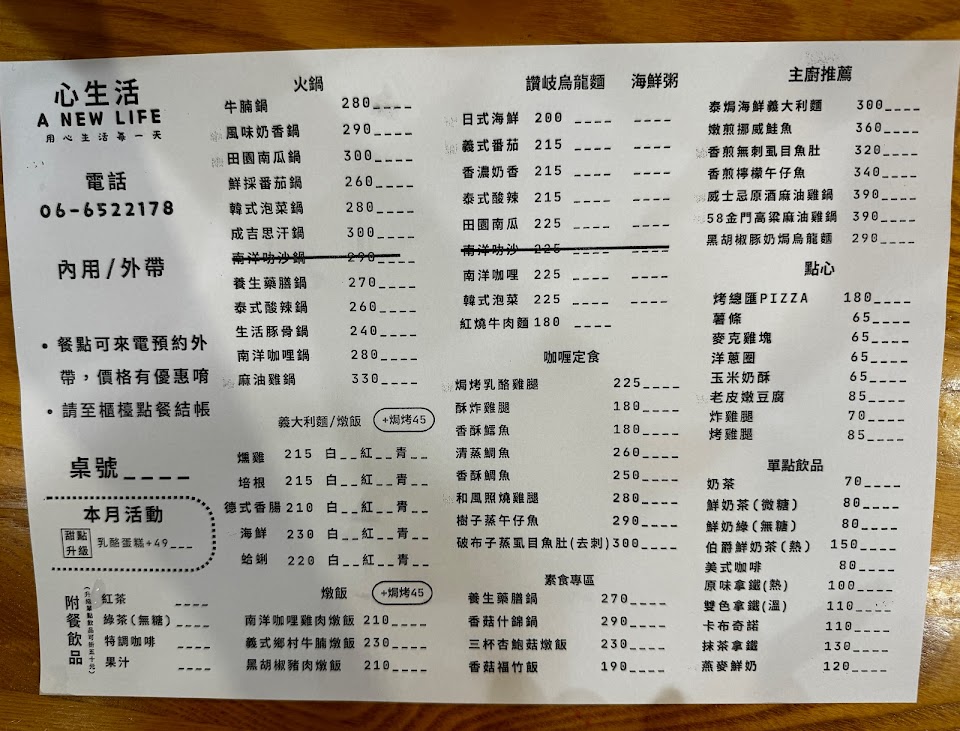 心生活
A NEW LIFE
用心生活每一天
電話
06-6522178
內用/外帶
• 餐點可來電預約外
帶，價格有優惠唷
• 請至櫃檯點餐結帳
桌號____
本月活動
甜點升級 乳酪蛋糕+49___
附餐飲品
(升級單點飲品可折五十元)
紅茶 ____
綠茶(無糖) ____
特調咖啡 ____
果汁 ____
火鍋
牛腩鍋 280____
風味奶香鍋 290____
田園南瓜鍋 300____
鮮採番茄鍋 260____
韓式泡菜鍋 280____
成吉思汗鍋 300____
南洋叻沙鍋 290____
養生藥膳鍋 270____
泰式酸辣鍋 260____
生活豚骨鍋 240____
南洋咖哩鍋 280____
麻油雞鍋 330____
義大利麵/燉飯 +焗烤45
燻雞 215 白__紅__青__
培根 215 白__紅__青__
德式香腸 210 白__紅__青__
海鮮 230 白__紅__青__
蛤蜊 220 白__紅__青__
燉飯 +焗烤45
南洋咖哩雞肉燉飯 210____
義式鄉村牛腩燉飯 230____
黑胡椒豬肉燉飯 210____
讚岐烏龍麵 海鮮粥
日式海鮮 200 ____ ____
義式番茄 215 ____ ____
香濃奶香 215 ____ ____
泰式酸辣 215 ____ ____
田園南瓜 225 ____ ____
南洋叻沙 225 ____ ____
南洋咖哩 225 ____ ____
韓式泡菜 225 ____ ____
紅燒牛肉麵 180 ____
咖喱定食
焗烤乳酪雞腿 225____
酥炸雞腿 180____
香酥鱈魚 180____
清蒸鯛魚 260____
香酥鯛魚 250____
和風照燒雞腿 280____
樹子蒸午仔魚 290____
破布子蒸虱目魚肚(去刺)300____
素食專區
養生藥膳鍋 270____
香菇什錦鍋 290____
三杯杏鮑菇燉飯 230____
香菇福竹飯 190____
主廚推薦
泰焗海鮮義大利麵 300____
嫩煎挪威鮭魚 360____
香煎無刺虱目魚肚 320____
香煎檸檬午仔魚 340____
威士忌原酒麻油雞鍋 390____
58金門高粱麻油雞鍋 390____
黑胡椒豚奶焗烏龍麵 290____
點心
烤總匯PIZZA 180____
薯條 65____
麥克雞塊 65____
洋蔥圈 65____
玉米奶酥 65____
老皮嫩豆腐 85____
炸雞腿 70____
烤雞腿 85____
單點飲品
奶茶 70____
鮮奶茶(微糖) 80____
鮮奶綠(無糖) 80____
伯爵鮮奶茶(熱) 150____
美式咖啡 80____
原味拿鐵(熱) 100____
雙色拿鐵(溫) 110____
卡布奇諾 110____
抹茶拿鐵 130____
燕麥鮮奶 120____